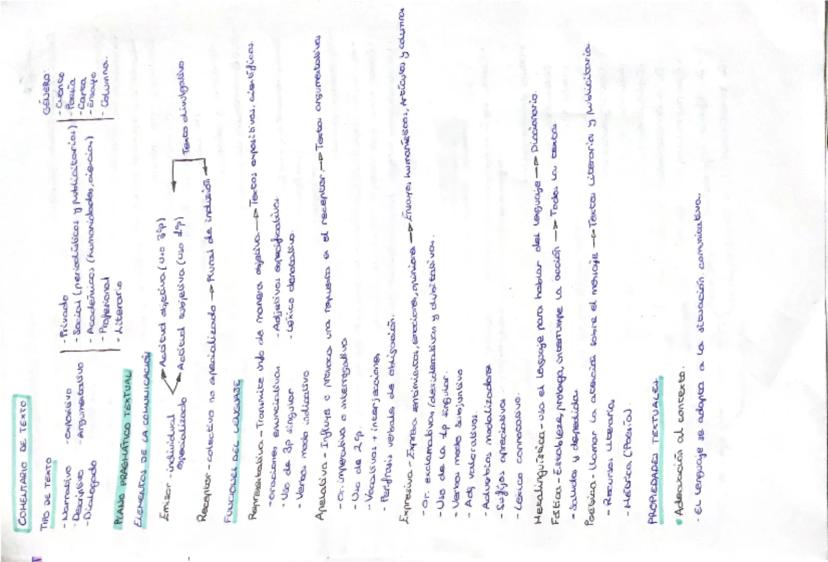 COMENTARIO DE TEXTO
TIPO DE TEXTO
- Narrativo - Expositivo
- Descriptivo - Argumentativo
- Dialogado
- Privado
- Social (periodísticos y publicitarios)
- Académicos (humanidades, ciencias)
- Profesional
- Literario
GÉNERO:
- Cuento
- Poesía
- Carta
- Ensayo
- Columna.
PLANO PRAGMÁTICO TEXTUAL
ELEMENTOS DE LA COMUNICACIÓN
Emisor - individual especializado
Actitud objetiva (uso 3ªp)
Actitud subjetiva (uso 1ªp)
Texto divulgativo
Receptor - colectivo no especializado → Plural de inclusión
FUNCIONES DEL LENGUAJE
Representativa - Transmite info de manera objetiva → Textos expositivos, científicos.
- oraciones enunciativas - Adjetivos especificativos
- Uso de 3p singular - Léxico denotativo
- Verbos modo indicativo
Apelativa - Influye o provoca una respuesta en el receptor → Textos argumentativos
- Or. imperativa o interrogativa
- Uso de 2ªp.
- Vocativos + interjecciones
- Perífrasis verbales de obligación.
Expresiva - Expresa sentimientos, emociones, opiniones → Ensayos humanísticos, artículos y columnas
- Or. exclamativas, desiderativas y dubitativas.
- Uso de la 1ªp singular.
- Verbos modo subjuntivo
- Adj valorativos.
- Adverbios modalizadores
- Sufijos apreciativos
- Léxico connotativo.
Metalingüística - uso el lenguaje para hablar del lenguaje → Diccionario.
Fática - Establece, prolonga, interrumpe la acción → Todos los textos
- Saludos y despedida.
Poética - Llamar la atención sobre el mensaje → Textos literarios y publicitarios.
- Recursos literarios
- Métrica (Poesía).
PROPIEDADES TEXTUALES
• Adecuación al contexto.
- El lenguaje se adapta a la situación comunicativa.